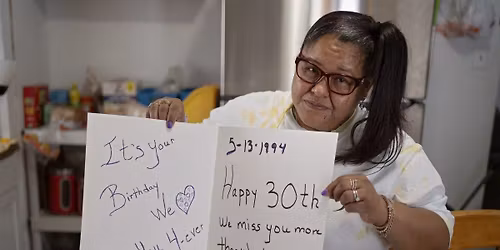 It's your
Birthday
We
5-13-1994
Happy 30th
We miss you more